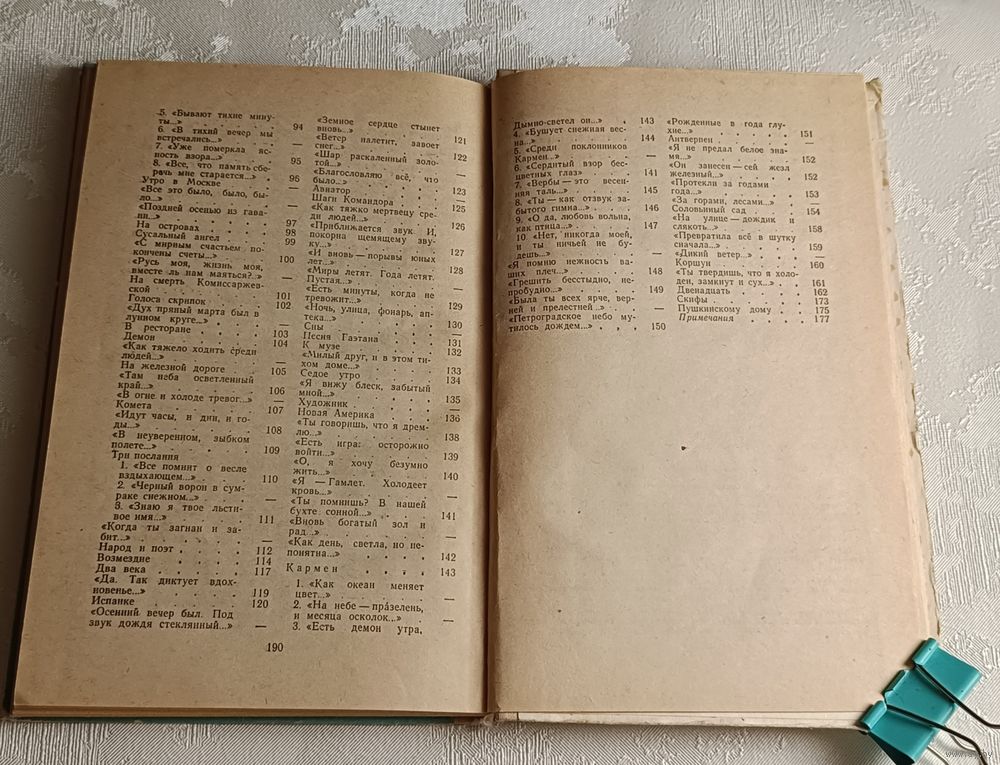 5. «Бывают тихие мину-
ты...» . . . . . 94
6. «В тихий вечер мы
встречались...» . . . —
7. «Уже померкла яс-
ность взора...» . . . —
8. «Все, что память сбе-
речь мне старается...» . 95
Утро в Москве . . . . 95
«Все это было, было, бы-
ло...» . . . . . —
«Поздней осенью из гава-
ни...» . . . . . —
На островах . . . . 97
Сусальный ангел . . . 98
«С мирным счастьем по-
кончены счеты...» . . . 99
«Русь моя, жизнь моя,
вместе ль нам маяться?..» 100
На смерть Комиссаржев-
ской . . . . . —
Голоса скрипок . . . 101
«Дух пряный марта был в
лунном круге...» . . . 102
В ресторане . . . . —
Демон . . . . . 103
«Как тяжело ходить среди
людей...» . . . . 104
На железной дороге . . —
«Там неба осветленный
край...» . . . . 105
«В огне и холоде тревог...» —
Комета . . . . . 106
«Идут часы, и дни, и го-
ды...» . . . . . 107
«В неуверенном, зыбком
полете...» . . . . 108
Три послания 109
1. «Все помнит о весле
вздыхающем...» . . . —
2. «Черный ворон в сум-
раке снежном...» . . . 110
3. «Знаю я твое льсти-
вое имя...» . . . . —
«Когда ты загнан и за-
бит...» . . . . . 111
Народ и поэт . . . . —
Возмездие . . . . 112
Два века . . . . . 114
«Да. Так диктует вдох- 117
новенье...» . . . . 119
Испанке . . . . . 120
«Осенний вечер был. Под
звук дождя стеклянный...» —
«Земное сердце стынет
вновь...» . . . . 121
«Ветер налетит, завоет
снег...» . . . . 122
«Шар раскаленный золо-
той...» . . . . —
«Благословляю всё, что
было...» . . . . —
Авиатор . . . . 123
Шаги Командора . . . 125
«Как тяжко мертвецу сре-
ди людей...» . . . —
«Приближается звук. И,
покорна щемящему зву-
ку...» . . . . 127
«И вновь — порывы юных
лет...» . . . . 128
«Миры летят. Года летят.
Пустая...» . . . . —
«Есть минуты, когда не
тревожит...» . . . 129
«Ночь, улица, фонарь, ап-
тека...» . . . . —
Сны . . . . . 130
Песня Гаэтана . . . 131
К музе . . . . 132
«Милый друг, и в этом ти-
хом доме...» . . . 133
Седое утро . . . 134
«Я вижу блеск, забытый
мной...» . . . . 135
Художник . . . . —
Новая Америка . . . 136
«Ты говоришь, что я дрем-
лю...» . . . . 138
«Есть игра: осторожно
войти...» . . . . 139
«О, я хочу безумно
жить...» . . . . 140
«Я — Гамлет. Холодеет
кровь...» . . . . —
«Ты помнишь? В нашей
бухте сонной...» . . . 141
«Вновь богатый зол и
рад...» . . . . —
«Как день, светла, но не-
понятна...» . . . 142
Кармен . . . . 143
1. «Как океан меняет
цвет...» . . . . —
2. «На небе — празелень,
и месяца осколок...» . . —
3. «Есть демон утра,
190
Дымно-светел он...» . . 143
4. «Бушует снежная вес-
на...» . . . . . 144
5. «Среди поклонников
Кармен...» . . . . —
6. «Сердитый взор бес-
цветных глаз» . . . 141
7. «Вербы — это весен-
няя таль...» . . . . 145
8. «Ты — как отзвук за-
бытого гимна...» . . . 146
9. «О да, любовь вольна,
как птица...» . . . 147
10. «Нет, никогда моей,
и ты ничьей не бу-
дешь...» . . . . —
«Я помню нежность ва-
ших плеч...» . . . 148
«Грешить бесстыдно, не-
пробудно...» . . . 149
«Была ты всех ярче, вер-
ней и прелестней...» . . —
«Петроградское небо му-
тилось дождем...» . . . 150
«Рожденные в года глу-
хие...» . . . . 151
Антверпен . . . . —
«Я не предал белое зна-
мя...» . . . . . 152
«Он занесен — сей жезл
железный...» . . . 152
«Протекли за годами
года...» . . . . 153
«За горами, лесами...» . —
Соловьиный сад . . . 154
«На улице — дождик и
слякоть...» . . . 158
«Превратила всё в шутку
сначала...» . . . 159
«Дикий ветер...» . . . —
Коршун . . . . 160
«Ты твердишь, что я холо-
ден, замкнут и сух...» . 161
Двенадцать . . . . 162
Скифы . . . . . 173
Пушкинскому дому . . . 175
Примечания . . . . 177